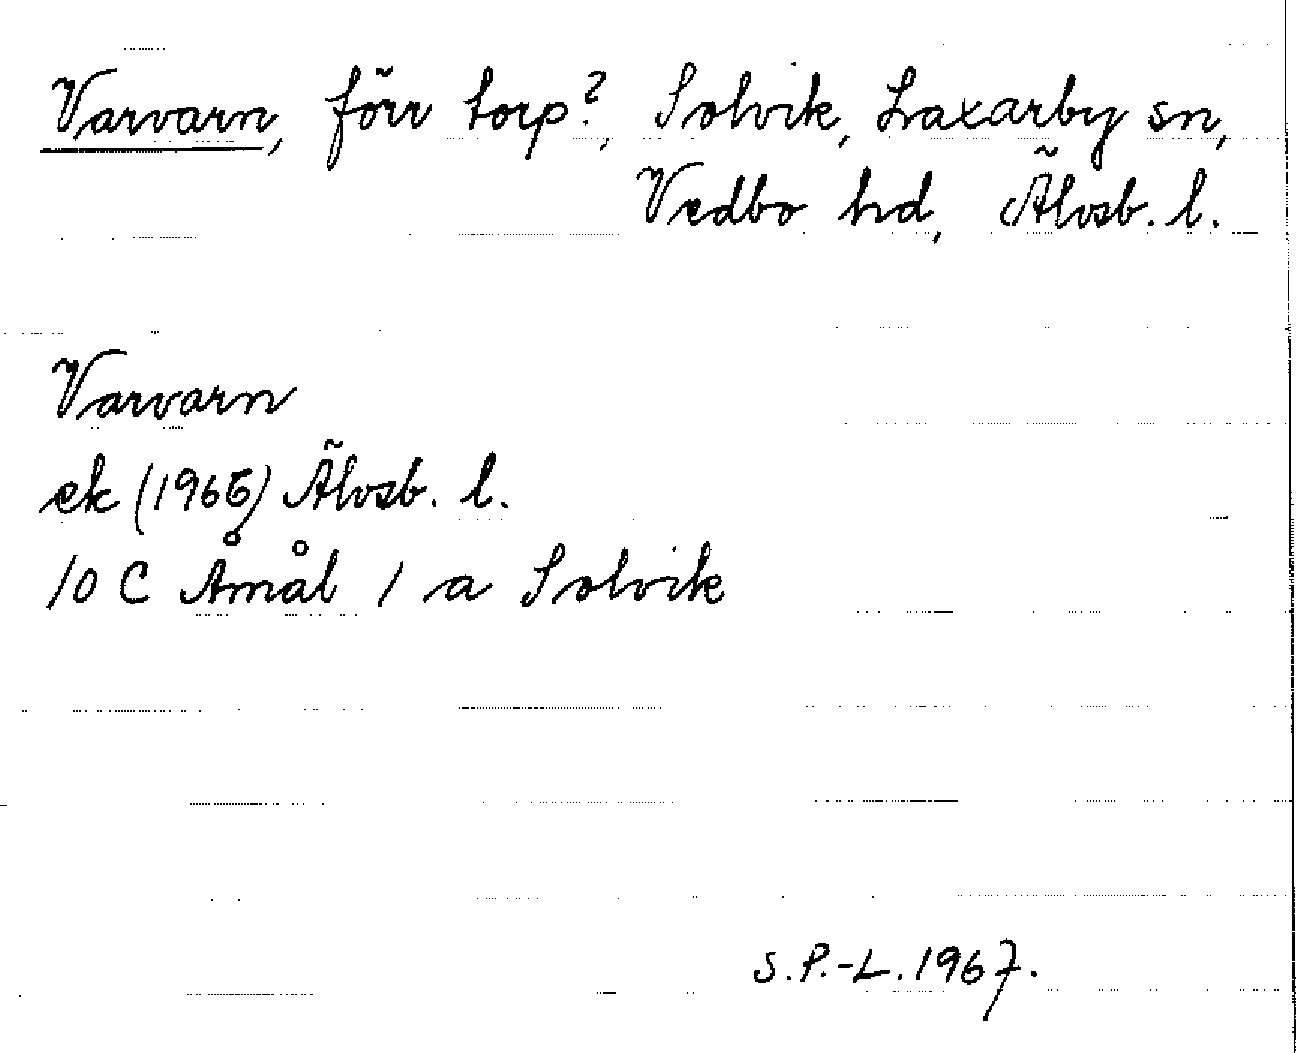 Varvarn, förr torp?, Solvik, Laxarby sn,
Vedbo hd, Älvsb. l.
Varvarn
ek (1965) Älvsb. l.
10 C Åmål 1 a Solvik
S.P.-L. 1967.